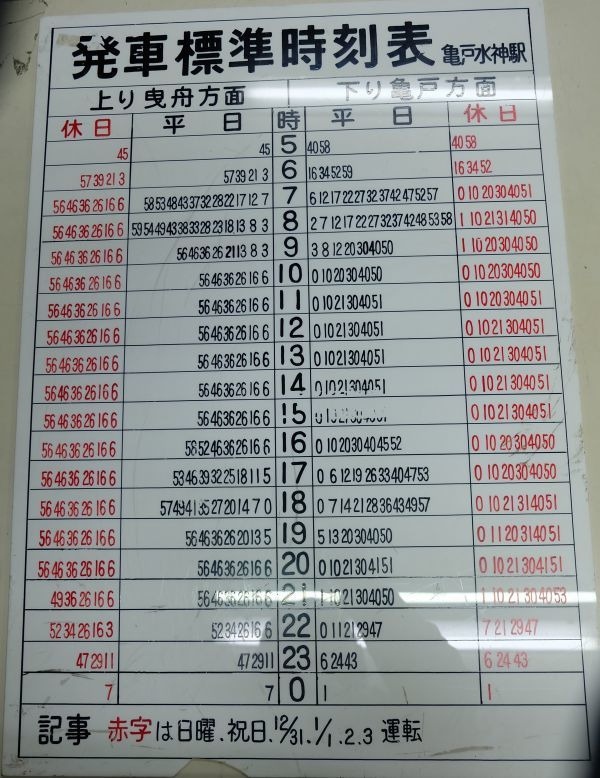 発車標準時刻表 亀戸水神駅
上り曳舟方面 下り亀戸方面
休日 平日 時 平日 休日
45 45 5 4058 4058
5739213 5739213 6 16345259 163452
5646362616 6 5853484337322822171127 7 61217222732374247 5257 01020304051
56463626166 5954494338332823181383 8 2712172227323742485358 11021314050
56463626166 564636262113 83 9 381220304050 11020304050
56463626166 56463626166 10 01020304050 01020304050
56463626166 56463626166 11 01020304051 01020304051
56463626166 56463626166 12 01021304051 01021304051
56463626166 56463626166 13 01021304051 01021304051
56463626166 56463626166 14 01021304051 01021304051
56463626166 56463626166 15 01021304051
56463626166 5652463626166 16 0102030404552 01020304050
56463626166 534639322518115 17 06121926334047 53 01020304050
56463626166 574941352720147 0 18 07142128364349 57 01021314050
56463626166 564636262013 5 19 51320304050 01120314051
56463626166 56463626166 20 01021304151 01021304151
4936261 66 56463626166 21 11021304050 11021304053
5234261 63 523426166 22 011212947 7212947
472911 472911 23 62443 62443
7 7 0 1 1
記事 赤字は日曜、祝日、12/31、1/1、2、3 運転